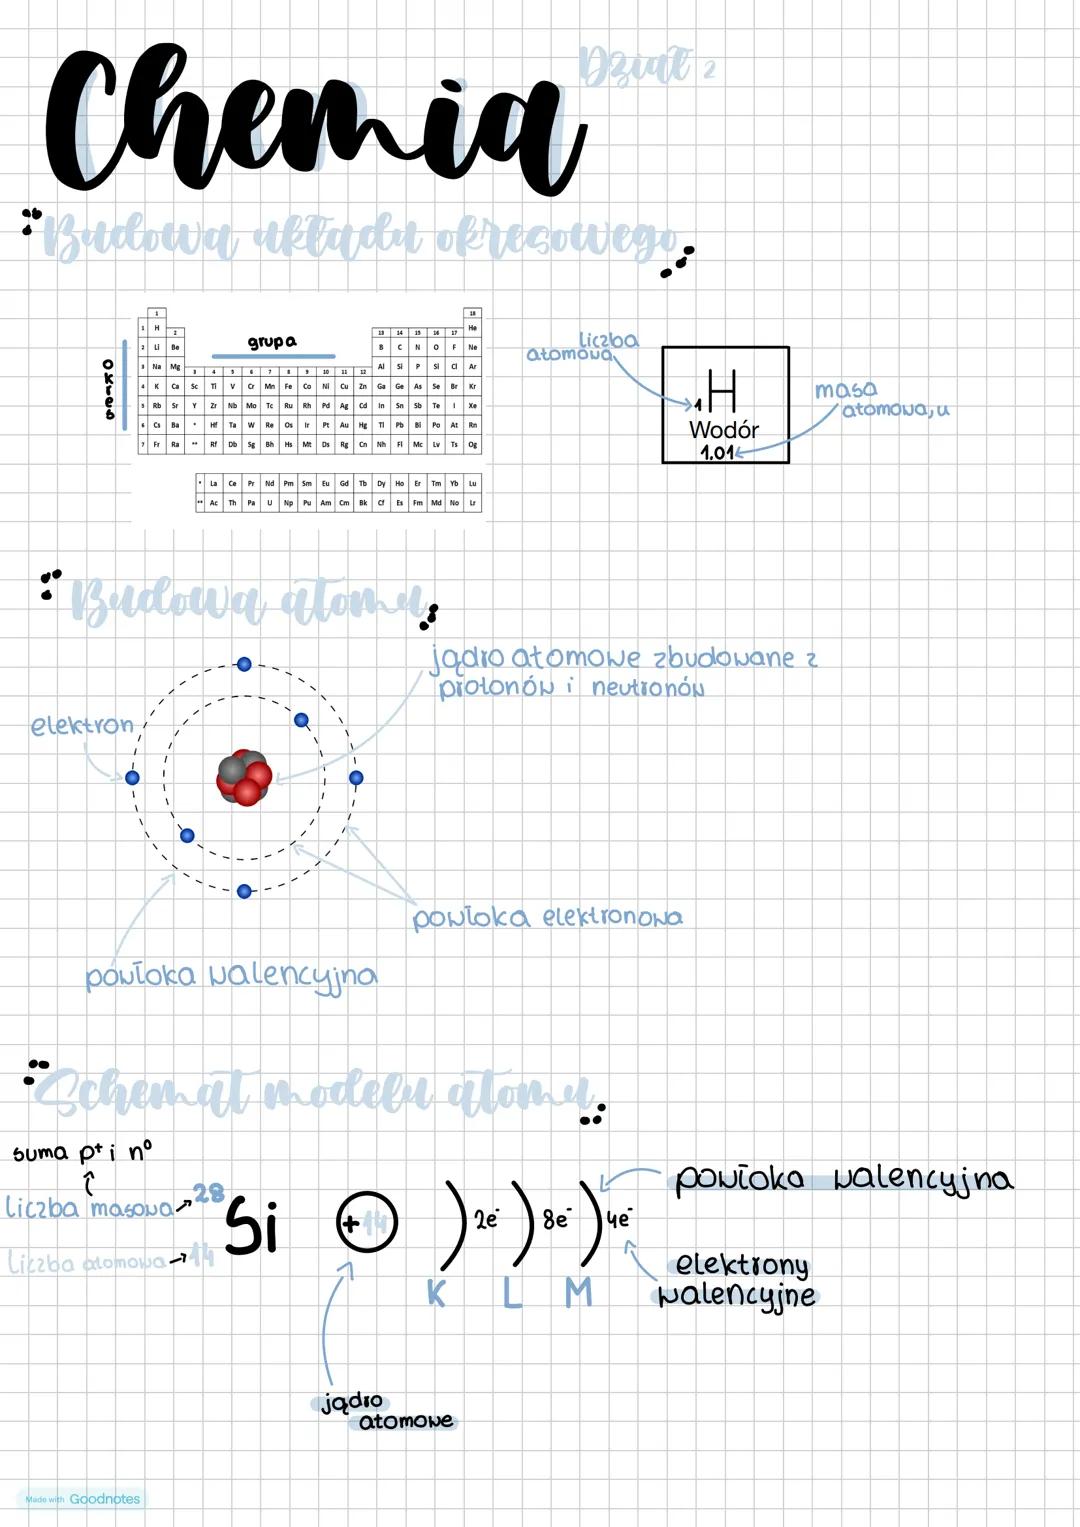 Chemia
Dział 2
Budowa układu okresowego
1 18
1 H 2 13 14 15 16 17 He
2 Li Be grupa B C N O F Ne
3 Na Mg 3 4 5 6 7 8 9 10 11 12 Al Si P Si Cl Ar
4 K Ca Sc Ti V Cr Mn Fe Co Ni Cu Zn Ga Ge As Se Br Kr
5 Rb Sr Y Zr Nb Mo Tc Ru Rh Pd Ag Cd In Sn Sb Te I Xe
6 Cs Ba * Hf Ta W Re Os Ir Pt Au Hg Tl Pb Bi Po At Rn
7 Fr Ra ** Rf Db Sg Bh Hs Mt Ds Rg Cn Nh Fl Mc Lv Ts Og
* La Ce Pr Nd Pm Sm Eu Gd Tb Dy Ho Er Tm Yb Lu
** Ac Th Pa U Np Pu Am Cm Bk Cf Es Fm Md No Lr
okres
liczba
atomowa
1 H
Wodór
1.01
masa
atomowa, u
Budowa atomu
jądro atomowe zbudowane z
protonów i neutronów
elektron
powłoka elektronowa
powłoka walencyjna
Schemat modelu atomu
suma p+ i n0
liczba masowa 28
Liczba atomowa 14
Si
+14
2e- 8e- 4e-
K L M
powłoka walencyjna
elektrony
walencyjne
jądro
atomowe
Made with Goodnotes